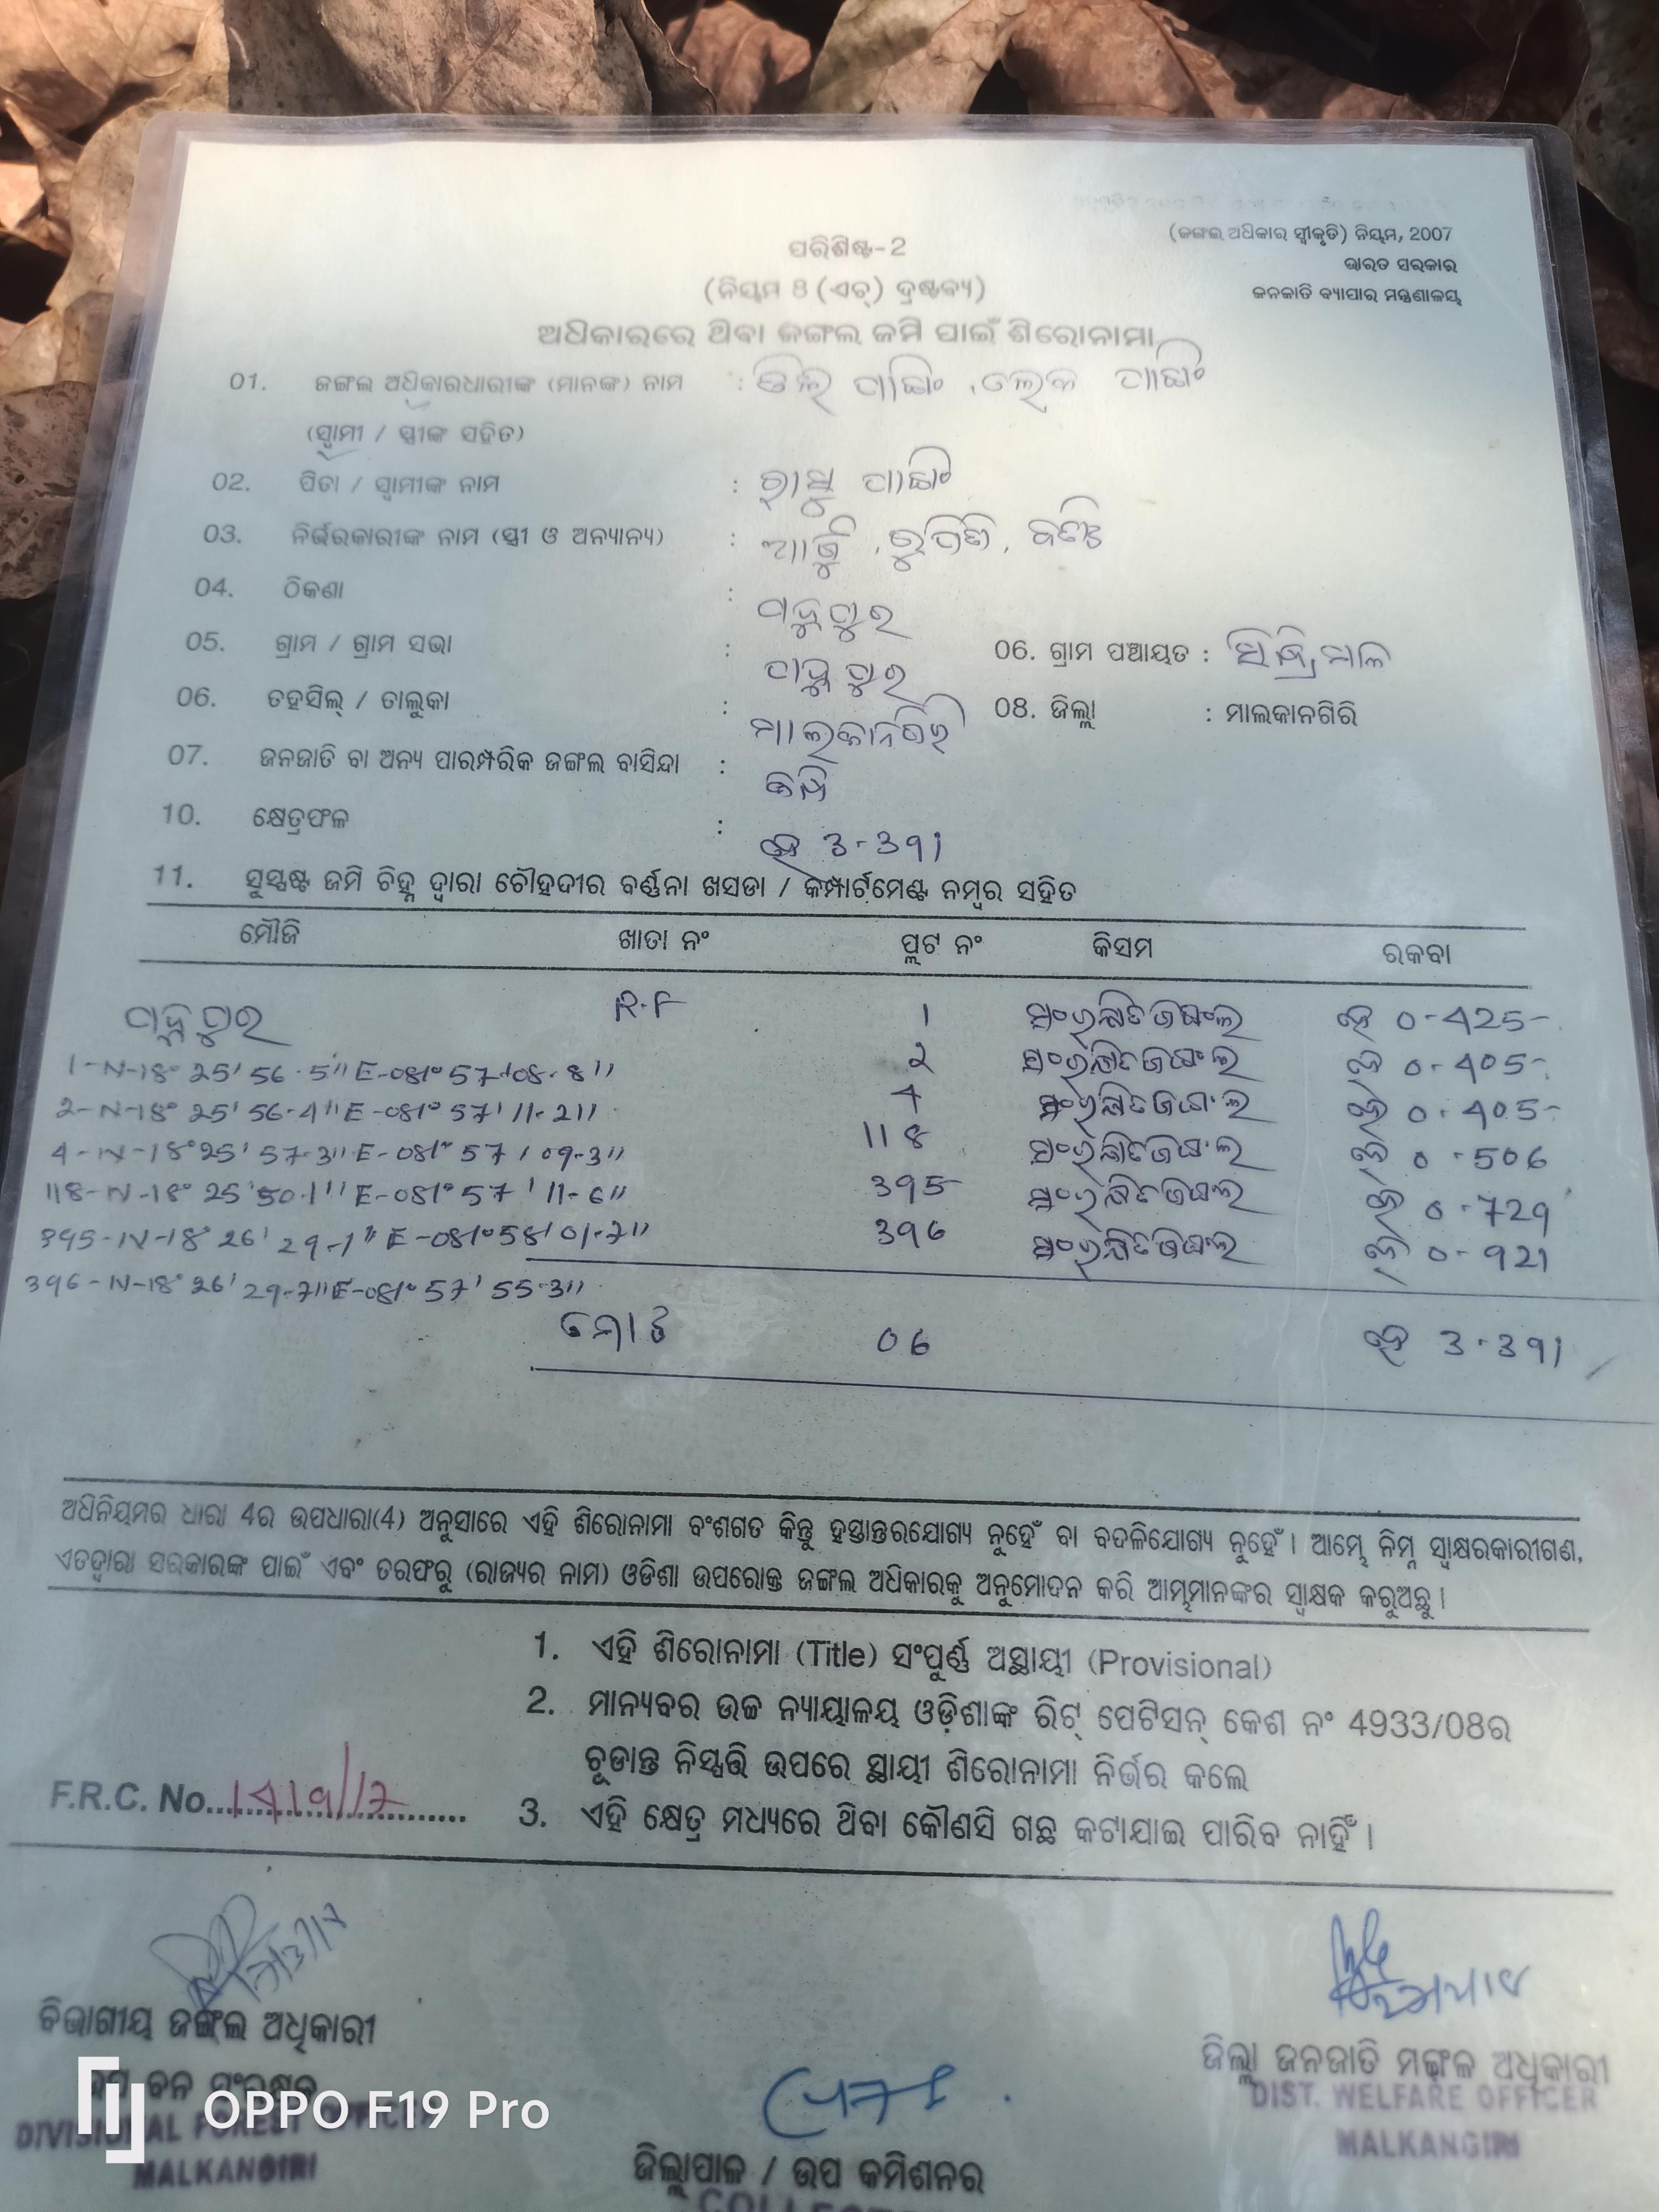 (ଜଙ୍ଗଲ ଅଧିକାର ସ୍ୱୀକୃତି) ନିୟମ, 2007
ପରିଶିଷ୍ଟ-2
ଭାରତ ସରକାର
(ନିୟମ 8 (ଏଚ୍) ଦ୍ରଷ୍ଟବ୍ୟ)
ଜନଜାତି ବ୍ୟାପାର ମନ୍ତ୍ରଣାଳୟ
ଅଧିକାରରେ ଥିବା ଜଙ୍ଗଲ ଜମି ପାଇଁ ଶିରୋନାମା
01. ଜଙ୍ଗଲ ଅଧିକାରଧାରୀଙ୍କ (ମାନଙ୍କ) ନାମ :
(ସ୍ୱାମୀ / ସ୍ତ୍ରୀଙ୍କ ସହିତ)
02. ପିତା / ସ୍ୱାମୀଙ୍କ ନାମ :
03. ନିର୍ଭରକାରୀଙ୍କ ନାମ (ସ୍ତ୍ରୀ ଓ ଅନ୍ୟାନ୍ୟ) :
04. ଠିକଣା :
05. ଗ୍ରାମ / ଗ୍ରାମ ସଭା : 06. ଗ୍ରାମ ପଞ୍ଚାୟତ :
06. ତହସିଲ୍ / ତାଲୁକା : ମାଲକାନଗିରି 08. ଜିଲ୍ଲା : ମାଲକାନଗିରି
07. ଜନଜାତି ବା ଅନ୍ୟ ପାରମ୍ପରିକ ଜଙ୍ଗଲ ବାସିନ୍ଦା :
10. କ୍ଷେତ୍ରଫଳ : ହେ 3-391
11. ସୁସ୍ପଷ୍ଟ ଜମି ଚିହ୍ନ ଦ୍ୱାରା ଚୌହଦୀର ବର୍ଣ୍ଣନା ଖସଡା / କମ୍ପାର୍ଟମେଣ୍ଟ ନମ୍ବର ସହିତ
ମୌଜି ଖାତା ନଂ ପ୍ଲଟ ନଂ କିସମ ରକବା
R.F 1 ସଂରକ୍ଷିତ ଜଙ୍ଗଲ ହେ 0-425
1-N-18° 25' 56.5" E-081° 57' 08.8" 2 ସଂରକ୍ଷିତ ଜଙ୍ଗଲ ହେ 0-405
2-N-18° 25' 56-4" E-081° 57' 11-2" 4 ସଂରକ୍ଷିତ ଜଙ୍ଗଲ ହେ 0-405
4-N-18° 25' 57-3" E-081° 57' 09-3" 118 ସଂରକ୍ଷିତ ଜଙ୍ଗଲ ହେ 0-506
118-N-18° 25' 50.1" E-081° 57' 11-6" 395 ସଂରକ୍ଷିତ ଜଙ୍ଗଲ ହେ 0-729
395-N-18° 26' 29-1" E-081° 58' 01-7" 396 ସଂରକ୍ଷିତ ଜଙ୍ଗଲ ହେ 0-921
396-N-18° 26' 29-7" E-081° 57' 55-3"
ମୋଟ 06 ହେ 3-391
ଅଧିନିୟମର ଧାରା 4ର ଉପଧାରା(4) ଅନୁସାରେ ଏହି ଶିରୋନାମା ବଂଶଗତ କିନ୍ତୁ ହସ୍ତାନ୍ତରଯୋଗ୍ୟ ନୁହେଁ ବା ବଦଳିଯୋଗ୍ୟ ନୁହେଁ । ଆମ୍ଭେ ନିମ୍ନ ସ୍ୱାକ୍ଷରକାରୀଗଣ,
ଏତଦ୍ଦ୍ୱାରା ସରକାରଙ୍କ ପାଇଁ ଏବଂ ତରଫରୁ (ରାଜ୍ୟର ନାମ) ଓଡିଶା ଉପରୋକ୍ତ ଜଙ୍ଗଲ ଅଧିକାରକୁ ଅନୁମୋଦନ କରି ଆମ୍ଭମାନଙ୍କର ସ୍ୱାକ୍ଷକ କରୁଅଛୁ ।
1. ଏହି ଶିରୋନାମା (Title) ସଂପୂର୍ଣ୍ଣ ଅସ୍ଥାୟୀ (Provisional)
2. ମାନ୍ୟବର ଉଚ୍ଚ ନ୍ୟାୟାଳୟ ଓଡ଼ିଶାଙ୍କ ରିଟ୍ ପେଟିସନ୍ କେଶ ନଂ 4933/08ର
ଚୂଡାନ୍ତ ନିସ୍ପତ୍ତି ଉପରେ ସ୍ଥାୟୀ ଶିରୋନାମା ନିର୍ଭର କଲେ
F.R.C. No.
3. ଏହି କ୍ଷେତ୍ର ମଧ୍ୟରେ ଥିବା କୌଣସି ଗଛ କଟାଯାଇ ପାରିବ ନାହିଁ ।
ବିଭାଗୀୟ ଜଙ୍ଗଲ ଅଧିକାରୀ
ଜିଲ୍ଲା ଜନଜାତି ମଙ୍ଗଳ ଅଧିକାରୀ
DIST. WELFARE OFFICER
MALKANGIRI
OPPO F19 Pro
DIVISIONAL FOREST
MALKANGIRI
ଜିଲ୍ଲାପାଳ / ଉପ କମିଶନର